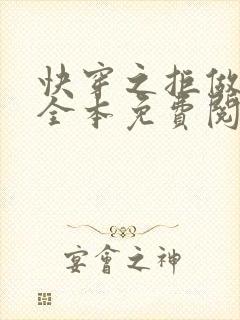 快穿之拒做
全本免費閱
宴會之神